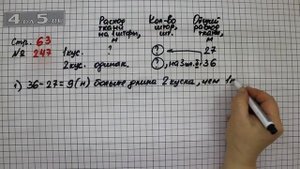 4 по 5 .com
Расход Кол-во Общий
ткани штор, расход
на 1 штору, шт. ткани,
Стр. 63 м м
№ 247 1 кус. ? 27
2 кус. одинак. ?, на 3 м. б. 36
1) 36-27=9(м) больше длина 2 куска, чем 1